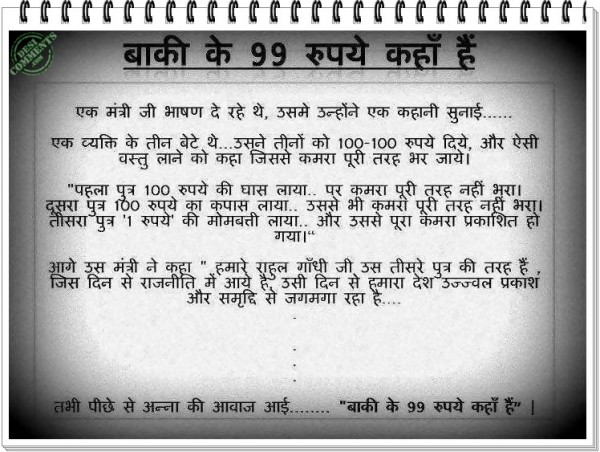 DESI
COMMENTS
.COM
बाकी के 99 रुपये कहाँ हैं
एक मंत्री जी भाषण दे रहे थे, उसमे उन्होंने एक कहानी सुनाई......
एक व्यक्ति के तीन बेटे थे...उसने तीनों को 100-100 रुपये दिये, और ऐसी
वस्तु लाने को कहा जिससे कमरा पूरी तरह भर जाये।
"पहला पुत्र 100 रुपये की घास लाया.. पर कमरा पूरी तरह नहीं भरा।
दूसरा पुत्र 100 रुपये का कपास लाया.. उससे भी कमरा पूरी तरह नहीं भरा।
तीसरा पुत्र '1 रुपये' की मोमबत्ती लाया.. और उससे पूरा कमरा प्रकाशित हो
गया।“
आगे उस मंत्री ने कहा " हमारे राहुल गाँधी जी उस तीसरे पुत्र की तरह हैं ,
जिस दिन से राजनीति में आये है, उसी दिन से हमारा देश उज्ज्वल प्रकाश
और समृद्दि से जगमगा रहा है....
.
.
.
.
तभी पीछे से अन्ना की आवाज आई........ "बाकी के 99 रुपये कहाँ हैं” |